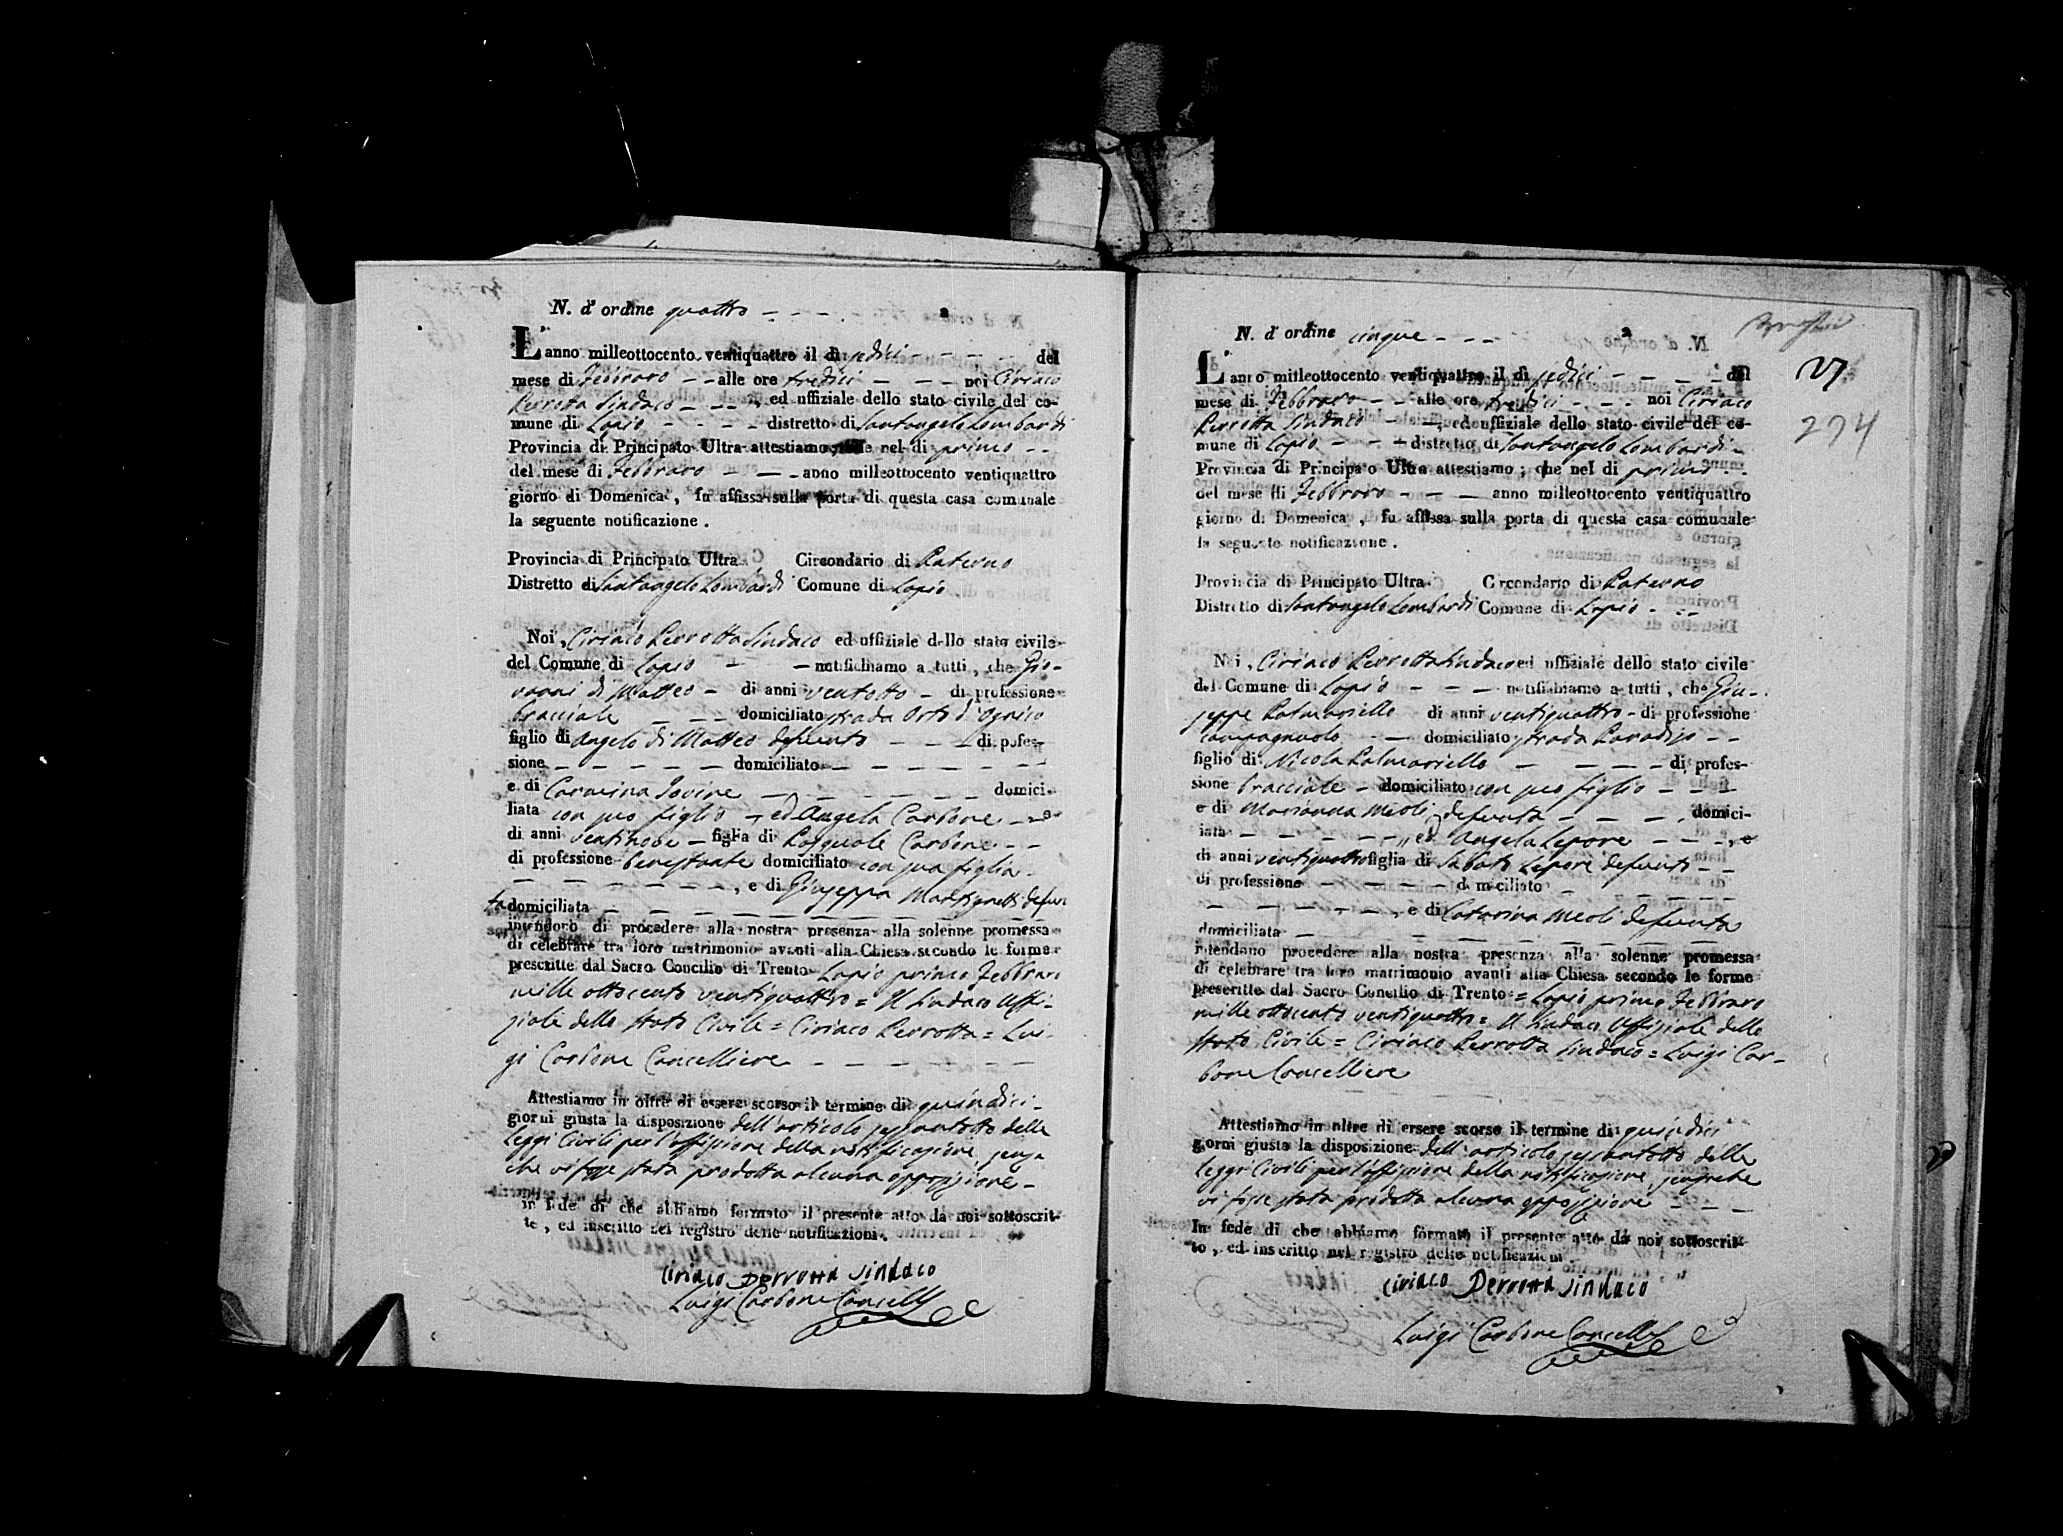 N. d' ordine quattro - - - -
L' anno milleottocento ventiquattro il dì sedici - - - - del
mese di Febbraro - - alle ore tredici - - - noi Ciriaco
Perrotta Sindaco - - - , ed uffiziale dello stato civile del co-
mune di Lapio - - - - distretto di Santangelo Lombardi
Provincia di Principato Ultra attestiamo, che nel di primo - -
del mese di Febbraro - - - anno milleottocento ventiquattro
giorno di Domenica , fu affissa sulla porta di questa casa comunale
la seguente notificazione .
Provincia di Principato Ultra Circondario di Paterno
Distretto di Santangelo Lombardi Comune di Lapio
Noi , Ciriaco Perrotta Sindaco ed uffiziale dello stato civile
del Comune di Lapio - - notifichiamo a tutti , che Gio-
vanni di Matteo - di anni ventotto - di professione
bracciale - - - domiciliato strada Orto d'
figlio di Angelo di Matteo defunto - - - di pofes-
sione - - - - - domiciliato - - - - - - -
e di Carmina Iovine - - - - - - domici-
liata con suo figlio -, ed Angela Carbone - - -
di anni ventinove - figlia di Pasquale Carbone - -
di professione benestante domiciliato con sua figlia -
- - - - - - - , e di Giuseppa defun
ta domiciliata - - - - - - - - - -
intendono di procedere alla nostra presenza alla solenne promessa
di celebrare tra loro matrimonio avanti alla Chiesa secondo le forme
prescritte dal Sacro Concilio di Trento Lapio primo Febbraro
mille ottocento ventiquattro = Il Sindaco Uffi-
ziale dello Stato Civile = Ciriaco Perrotta = Lui-
gi Carbone Cancelliere - - - - - -
Attestiamo in oltre di essere scorso il termine di quindici -
giorni giusta la disposizione dell' articolo sessantotto delle
Leggi Civili per l'affissione della notificazione, senza
che vi fosse stata prodotta alcuna opposizione -
in fede di che abbiamo formato il presente atto da noi sottoscrit-
to , ed inscritto nel registro delle notificazioni .
Ciriaco Perrotta Sindaco
Luigi Carbone Cancell
27
274
N. d' ordine cinque - - -
L' anno milleottocento ventiquattro il dì sedici - - - - del
mese di Febbraro - - alle ore tredici - - - noi Ciriaco
Perrotta Sindaco - - -, ed uffiziale dello stato civile del co-
mune di Lapio - - - distretto di Santangelo Lombardi -
Provincia di Principato Ultra attestiamo ; che nel di primo - -
del mese di Febbraro - - - anno milleottocento ventiquattro
giorno di Domenica , fu affissa sulla porta di questa casa comunale
la seguente notificazione .
Provincia di Principato Ultra Circondario di Paterno
Distretto di Santangelo Lombardi Comune di Lapio - - -
Noi , Ciriaco Perrotta Sindaco ed uffiziale dello stato civile
del Comune di Lapio - - - notifichiamo a tutti , che Giu-
seppe Palmariello di anni ventiquattro - di professione
campagnuolo - - domiciliato strada Paradiso - -
figlio di Nicola Palmariello - - - - di profes-
sione bracciale - domiciliato con suo figlio - - -
e di Marianna Meoli defunta - - - , domici-
iata - - - - - - , ed Angela Lepore - - - , e
di anni ventiquattro figlia di Sabato Lepore defunto - -
di professione - - - - domiciliato - - - -
- - - - - - - , e di Catarina Meoli defunta
domiciliata - - - - - - - - - -
intendono procedere alla nostra presenza alla solenne promessa
di celebrare tra loro matrimonio avanti alla Chiesa secondo le forme
prescritte dal Sacro Concilio di Trento = Lapio primo Febbraro
mille ottocento ventiquattro = Il Sindaco Uffiziale dello
Stato Civile = Ciriaco Perrotta Sindaco = Luigi Car-
bone Cancelliere
Attestiamo in oltre di essere scorso il termine di quindici
giorni giusta la disposizione dell' articolo sessantotto delle
Leggi Civili per l'affissione della notificazione, senza che
vi fosse stata prodotta alcuna opposizione - - -
In fede di che abbiamo formato il presente atto da noi sottoscrit-
to , ed inscritto nel registro delle notificazioni
Ciriaco Perrotta Sindaco
Luigi Carbone Cancell